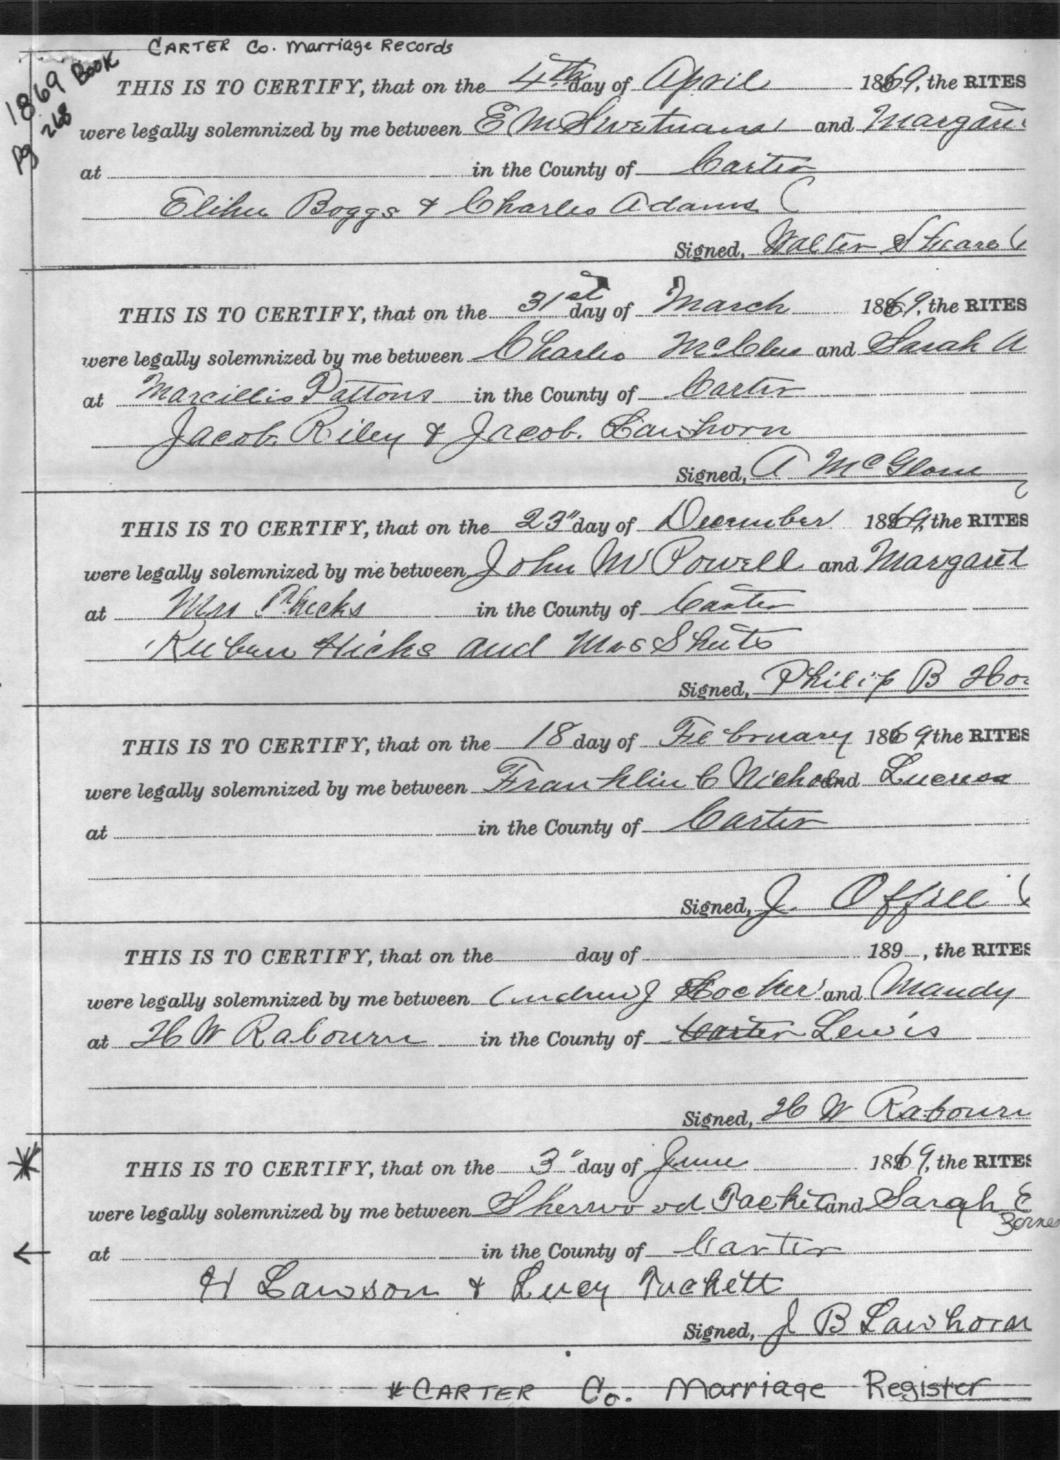 CARTER Co. Marriage Records
1869 Book
pg 268
THIS IS TO CERTIFY, that on the 4th day of April 1869, the RITES
were legally solemnized by me between E M Swetnam and
at in the County of Carter
Elihu Boggs & Charles Adams
Signed, Walter
THIS IS TO CERTIFY, that on the 31st day of March 1869, the RITES
were legally solemnized by me between Charles and Sarah A
at Marcillis Pattons in the County of Carter
Jacob Riley & Jacob Lawhorn
Signed, A McGlone
THIS IS TO CERTIFY, that on the 23" day of December 1869, the RITES
were legally solemnized by me between John M Powell and Margaret
at Mrs in the County of Carter
Reuben Hicks and
Signed, Philip B
THIS IS TO CERTIFY, that on the 18 day of February 1869, the RITES
were legally solemnized by me between Franklin C and
at in the County of Carter
Signed, J. Offill
THIS IS TO CERTIFY, that on the day of 189 , the RITES
were legally solemnized by me between Andrew J and Mandy
at H W Rabourn in the County of Carter Lewis
Signed, H W Rabourn
* THIS IS TO CERTIFY, that on the 3" day of June 1869, the RITES
were legally solemnized by me between Sherwood and Sarah E
at in the County of Carter
H Lawson & Lucy Tuckett
Signed, J B Lawhorn
*CARTER Co. Marriage Register